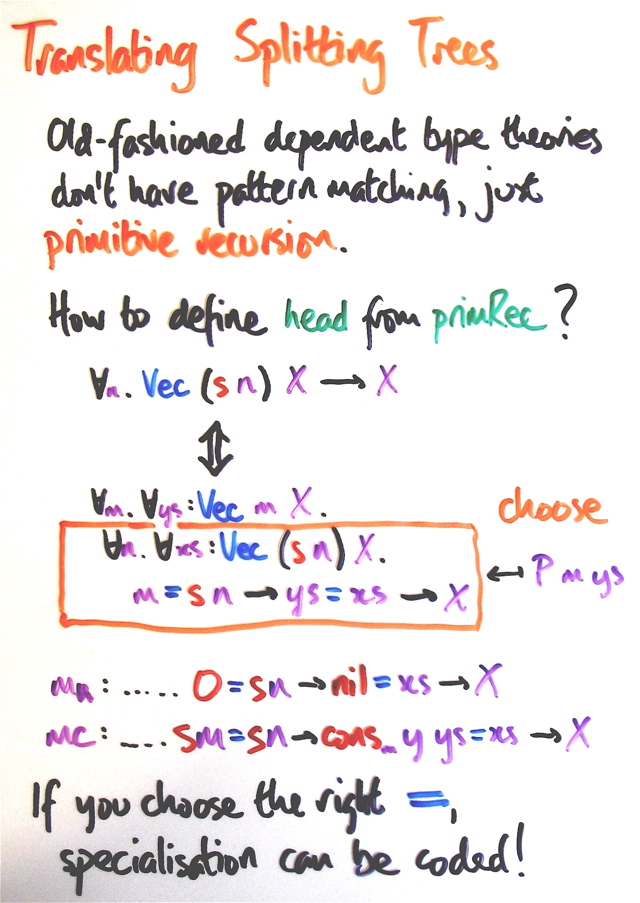 Translating Splitting Trees
Old-fashioned dependent type theories
don't have pattern matching, just
primitive recursion.
How to define head from primRec?
∀n. Vec (s n) X → X
⇕
∀m. ∀ys:Vec m X.
choose
∀n. ∀xs:Vec (s n) X.
m = s n → ys = xs → X
← P m ys
mn : ..... 0 = s n → nil = xs → X
mc : ..... s m = s n → cons_m y ys = xs → X
If you choose the right =,
specialisation can be coded!